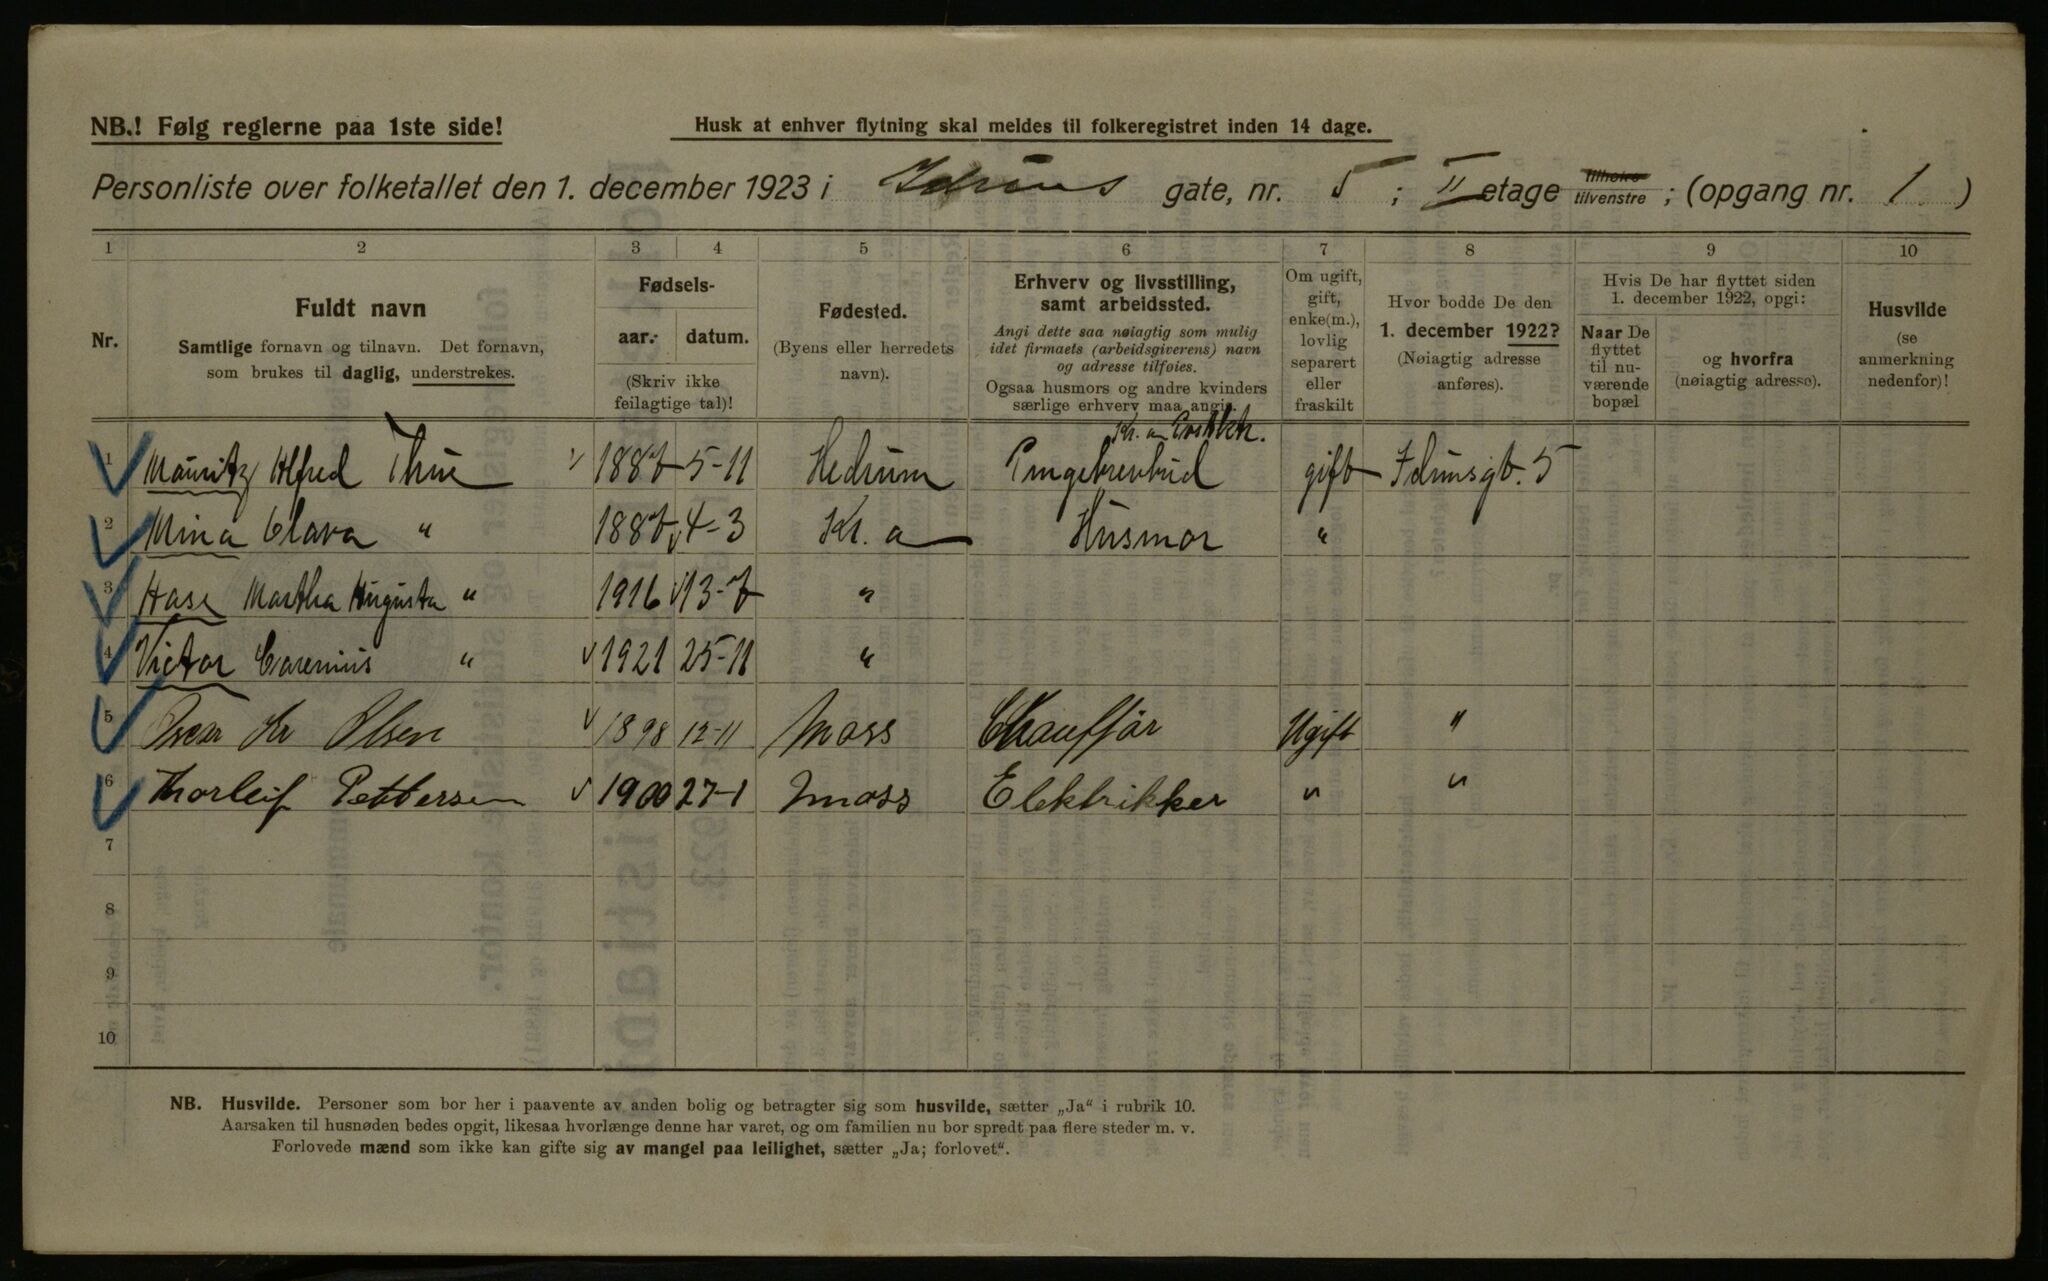 NB.! Følg reglerne paa 1ste side!
Husk at enhver flytning skal meldes til folkeregistret inden 14 dage.
Personliste over folketallet den 1. december 1923 i Iduns gate, nr. 5; II etage tilhøire tilvenstre; (opgang nr. 1)
1 2 3 4 5 6 7 8 9 10
Nr.
Fuldt navn
Samtlige fornavn og tilnavn. Det fornavn,
som brukes til daglig, understrekes.
Fødsels-
aar.- datum.
(Skriv ikke
feilagtige tal)!
Fødested.
(Byens eller herredets
navn).
Erhverv og livsstilling,
samt arbeidssted.
Angi dette saa nøiagtig som mulig
idet firmaets (arbeidsgiverens) navn
og adresse tilføies.
Ogsaa husmors og andre kvinders
særlige erhverv maa angis.
Om ugift,
gift,
enke(m.),
lovlig
separert
eller
fraskilt
Hvor bodde De den
1. december 1922?
(Nøiagtig adresse
anføres).
Hvis De har flyttet siden
1. december 1922, opgi:
Naar De
flyttet
til nu-
værende
bopæl
og hvorfra
(nøiagtig adresse).
Husvilde
(se
anmerkning
nedenfor)!
Kr. a
1 Mauritz Alfred Thue 1887 5-11 Hedrum Pengebrevbud gift Idunsgt. 5
2 Mina Clara " 1887 4-3 Kr. a Husmor "
3 Aase Martha Augusta " 1916 13-7 "
4 Victor " 1921 25-11 "
5 Oscar Kr Olsen 1898 12-11 Moss Chauffør Ugift "
6 Thorleif Pettersen 1900 27-1 Moss Elektrikker " "
7
8
9
10
NB. Husvilde. Personer som bor her i paavente av anden bolig og betragter sig som husvilde, sætter „Ja“ i rubrik 10.
Aarsaken til husnøden bedes opgit, likesaa hvorlænge denne har varet, og om familien nu bor spredt paa flere steder m. v.
Forlovede mænd som ikke kan gifte sig av mangel paa leilighet, sætter „Ja; forlovet“.